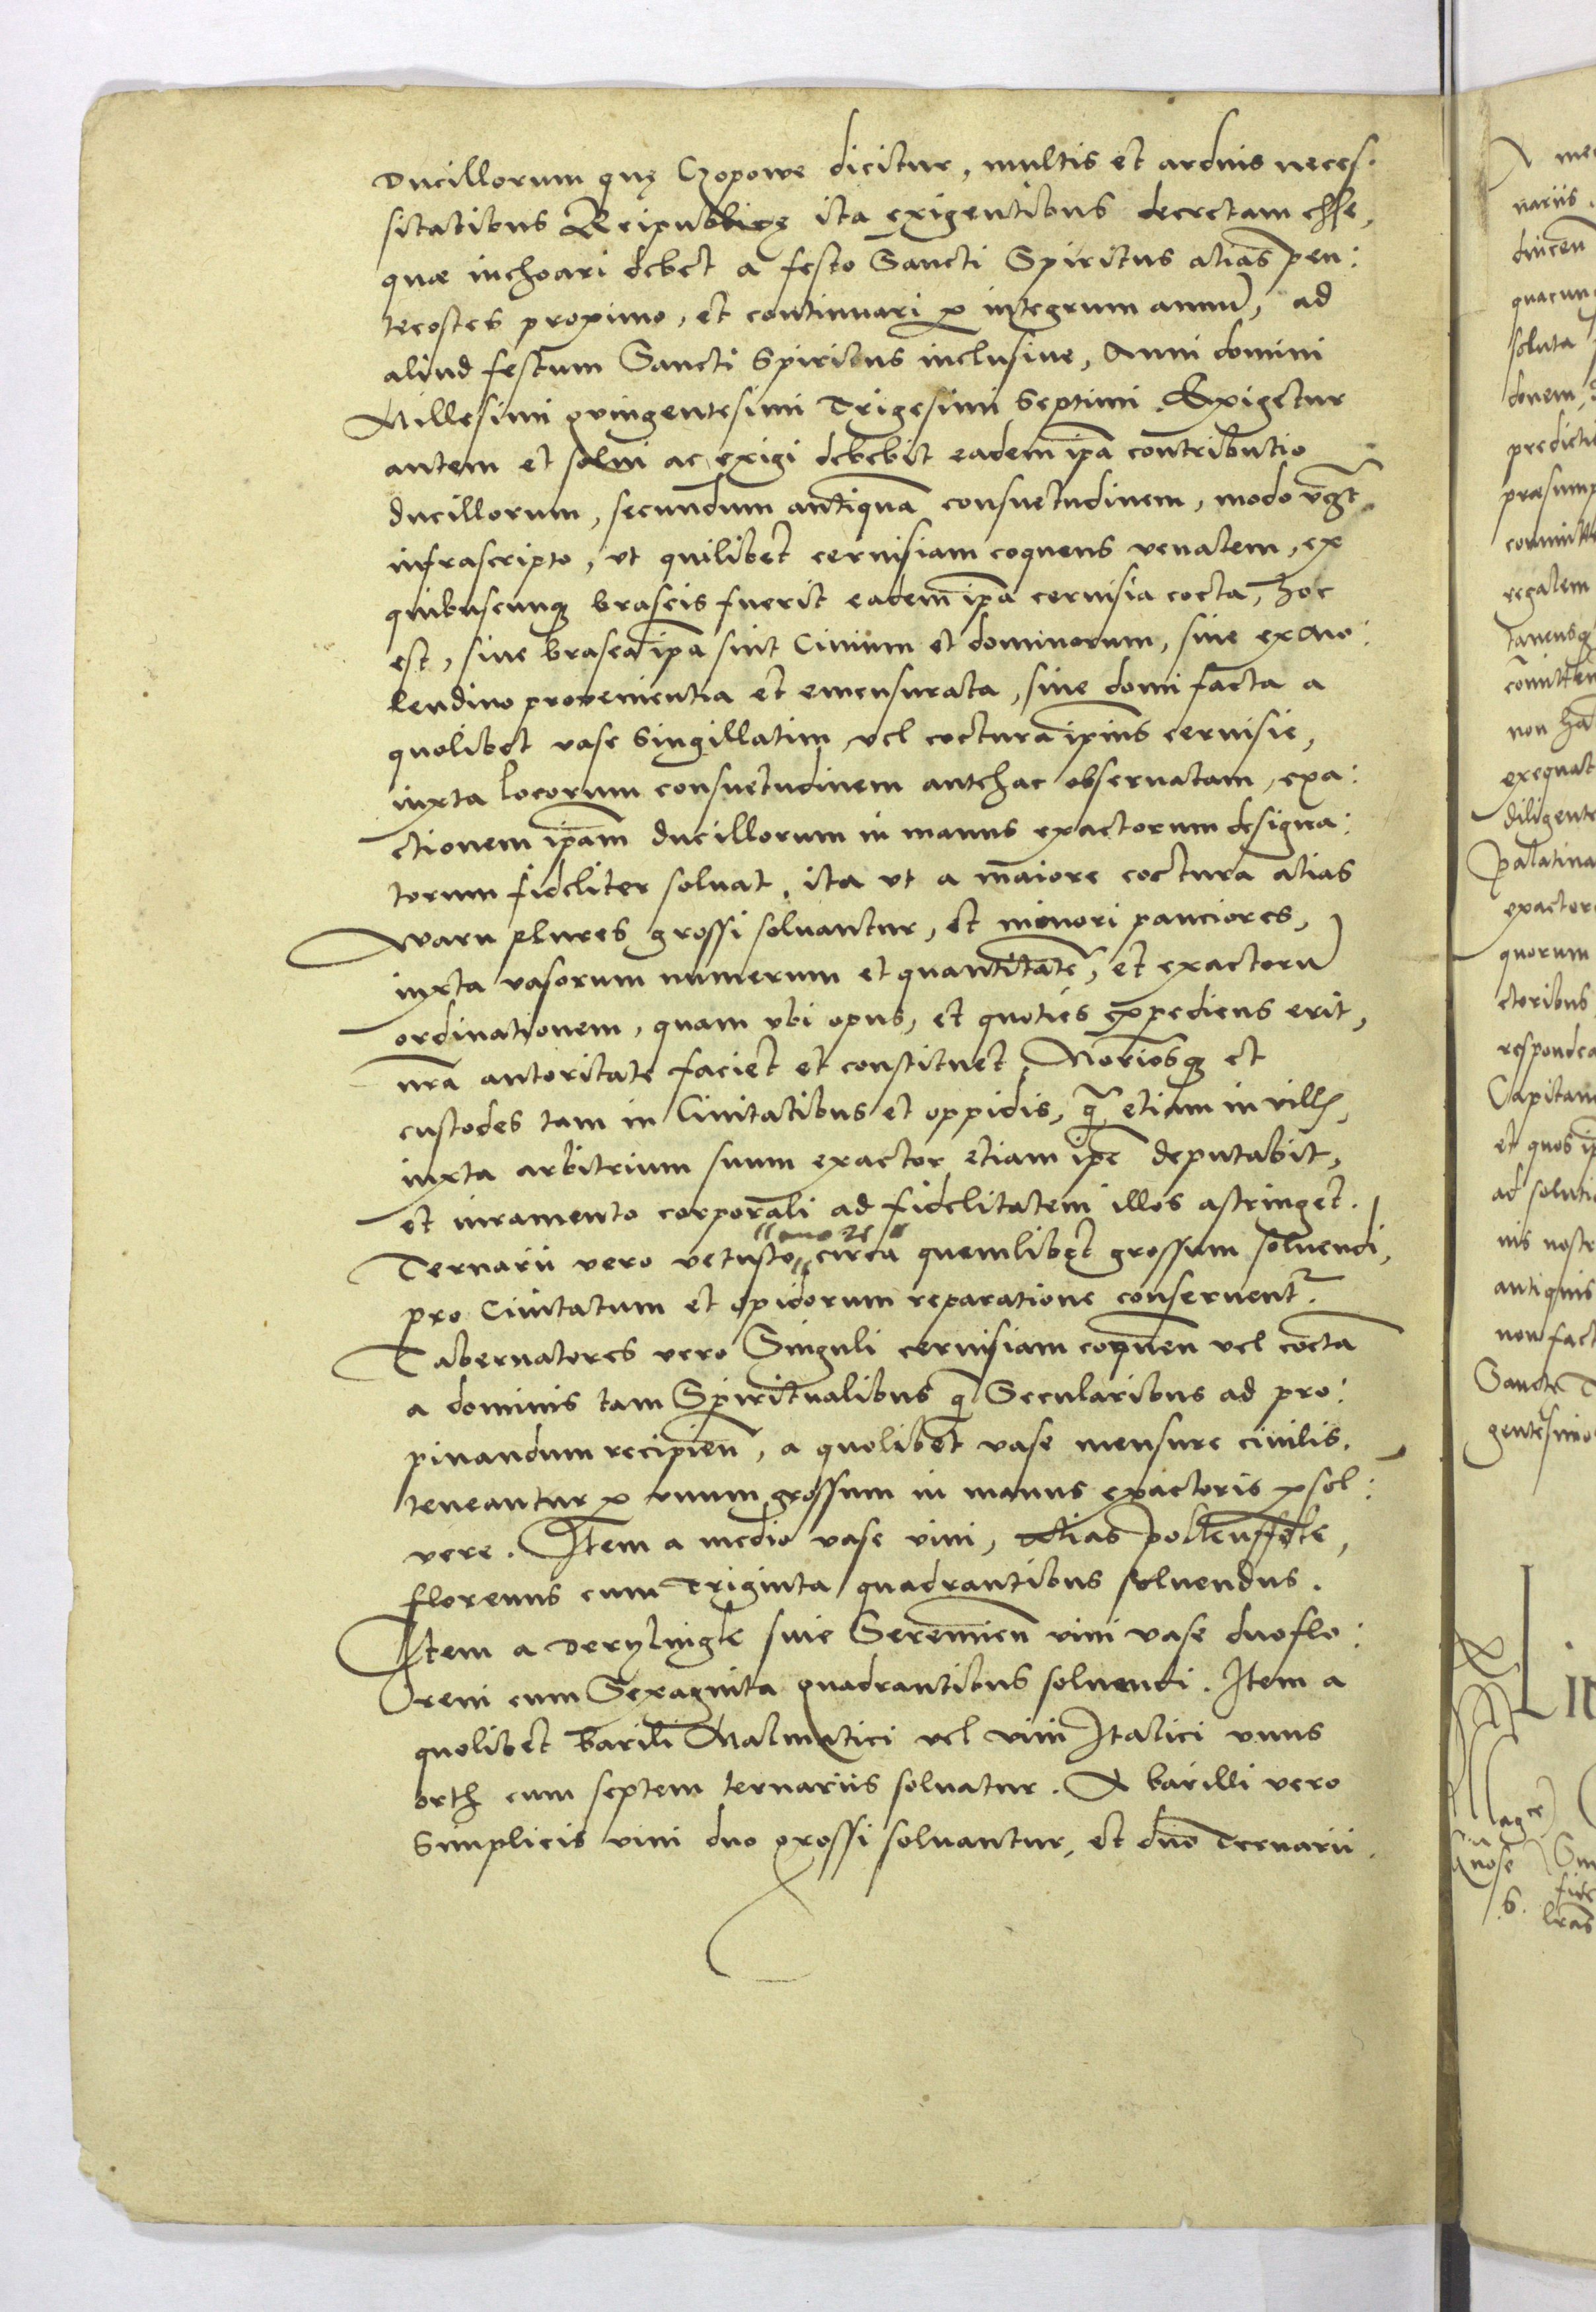 Ducillorum quę Czopowe dicitur, multis et arduis neces:
sitatibus Reipublicę ita exigentibus decretam esse,
quæ inchoari debet a festo Sancti Spiritus alias pen:
tecostes proximo, et continuari p integrum annũ, ad
aliud festum Sancti Spiritus inclusiue, Anni domini
Millesimi quingentesimi Trigesimi Septimi. Exigetur
autem et solui ac exigi debebit eadem ipã contributio
ducillorum, secundum antiquã consuetudinem, modo
infrascripto, vt quilibet ceruisiam coquens venalem, ex
quibuscunq braseis fuerit eadem ipã ceruisia cocta, hoc
est, siue brasea ipã sint Ciuium et dominorum, siue ex mo:
lendino prouenientia et emensurata, siue domi facta a
quolibet vase singillatim vel coctura ipius ceruisie,
iuxta locorum consuetudinem antehac obseruatam, exa:
ctionem ipãm ducillorum in manus exactorum designa:
torum fideliter soluat, ita vt a maiore coctura alias
Waru plures grossi soluantur, et minori pauciores,
iuxta vasorum numerum et quantitatẽ, et exactorũ
ordinationem, quam vbi opus, et quoties expediens erit,
nrã autoritate faciet et constituet, Notariosq et
custodes tam in Ciuitatibus et oppidis, q̃ etiam in vill,
iuxta arbitrium suum exactor etiam ipe deputabit,
et iuramento corporali ad fidelitatem illos astringet.
Ternarii vero vetusto circa quemlibet grossum soluendi,
pro Ciuitatum et opidorum reparatione conseruent.
Tabernatores vero Singuli ceruisiam coquen vel coctã
a dominis tam Spiritualibus q̃ Secularibus ad pro:
pinandum recipien, a quolibet vase mensure ciuilis,
teneantur p vnum grossum in manus exactoris psol:
uere. Item a medio vase vini, alias poltenffosle,
florenus cum Triginta quadrantibus soluendus.
Item a Derylingk siue Seremien vini vase duo flo:
reni cum Sexaginta quadrantibus soluendi. Item a
quolibet barili Malmatici vel vini Italici vnus
orth cum septem ternariis soluatur. A barilli vero
Simplicis vini duo grossi soluantur, et duo Ternarii.